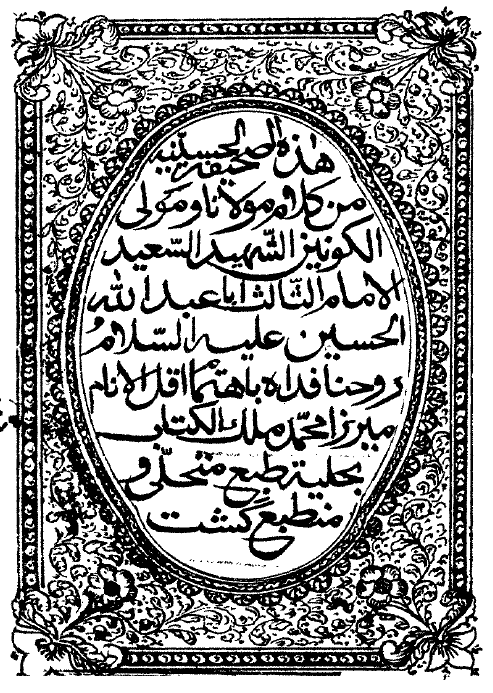 هذه الصحیفة الحسینیه
من کلام مولانا و مولی
الکونین الشّهید السّعید
الامام الثّالث ابا عبد الله
الحسین علیه السّلام
روحنا فداه باهتمام اقل الانام
میرزا محمّد ملک الکتاب
بحلیة طبع متحلّی و
منطبع گشت